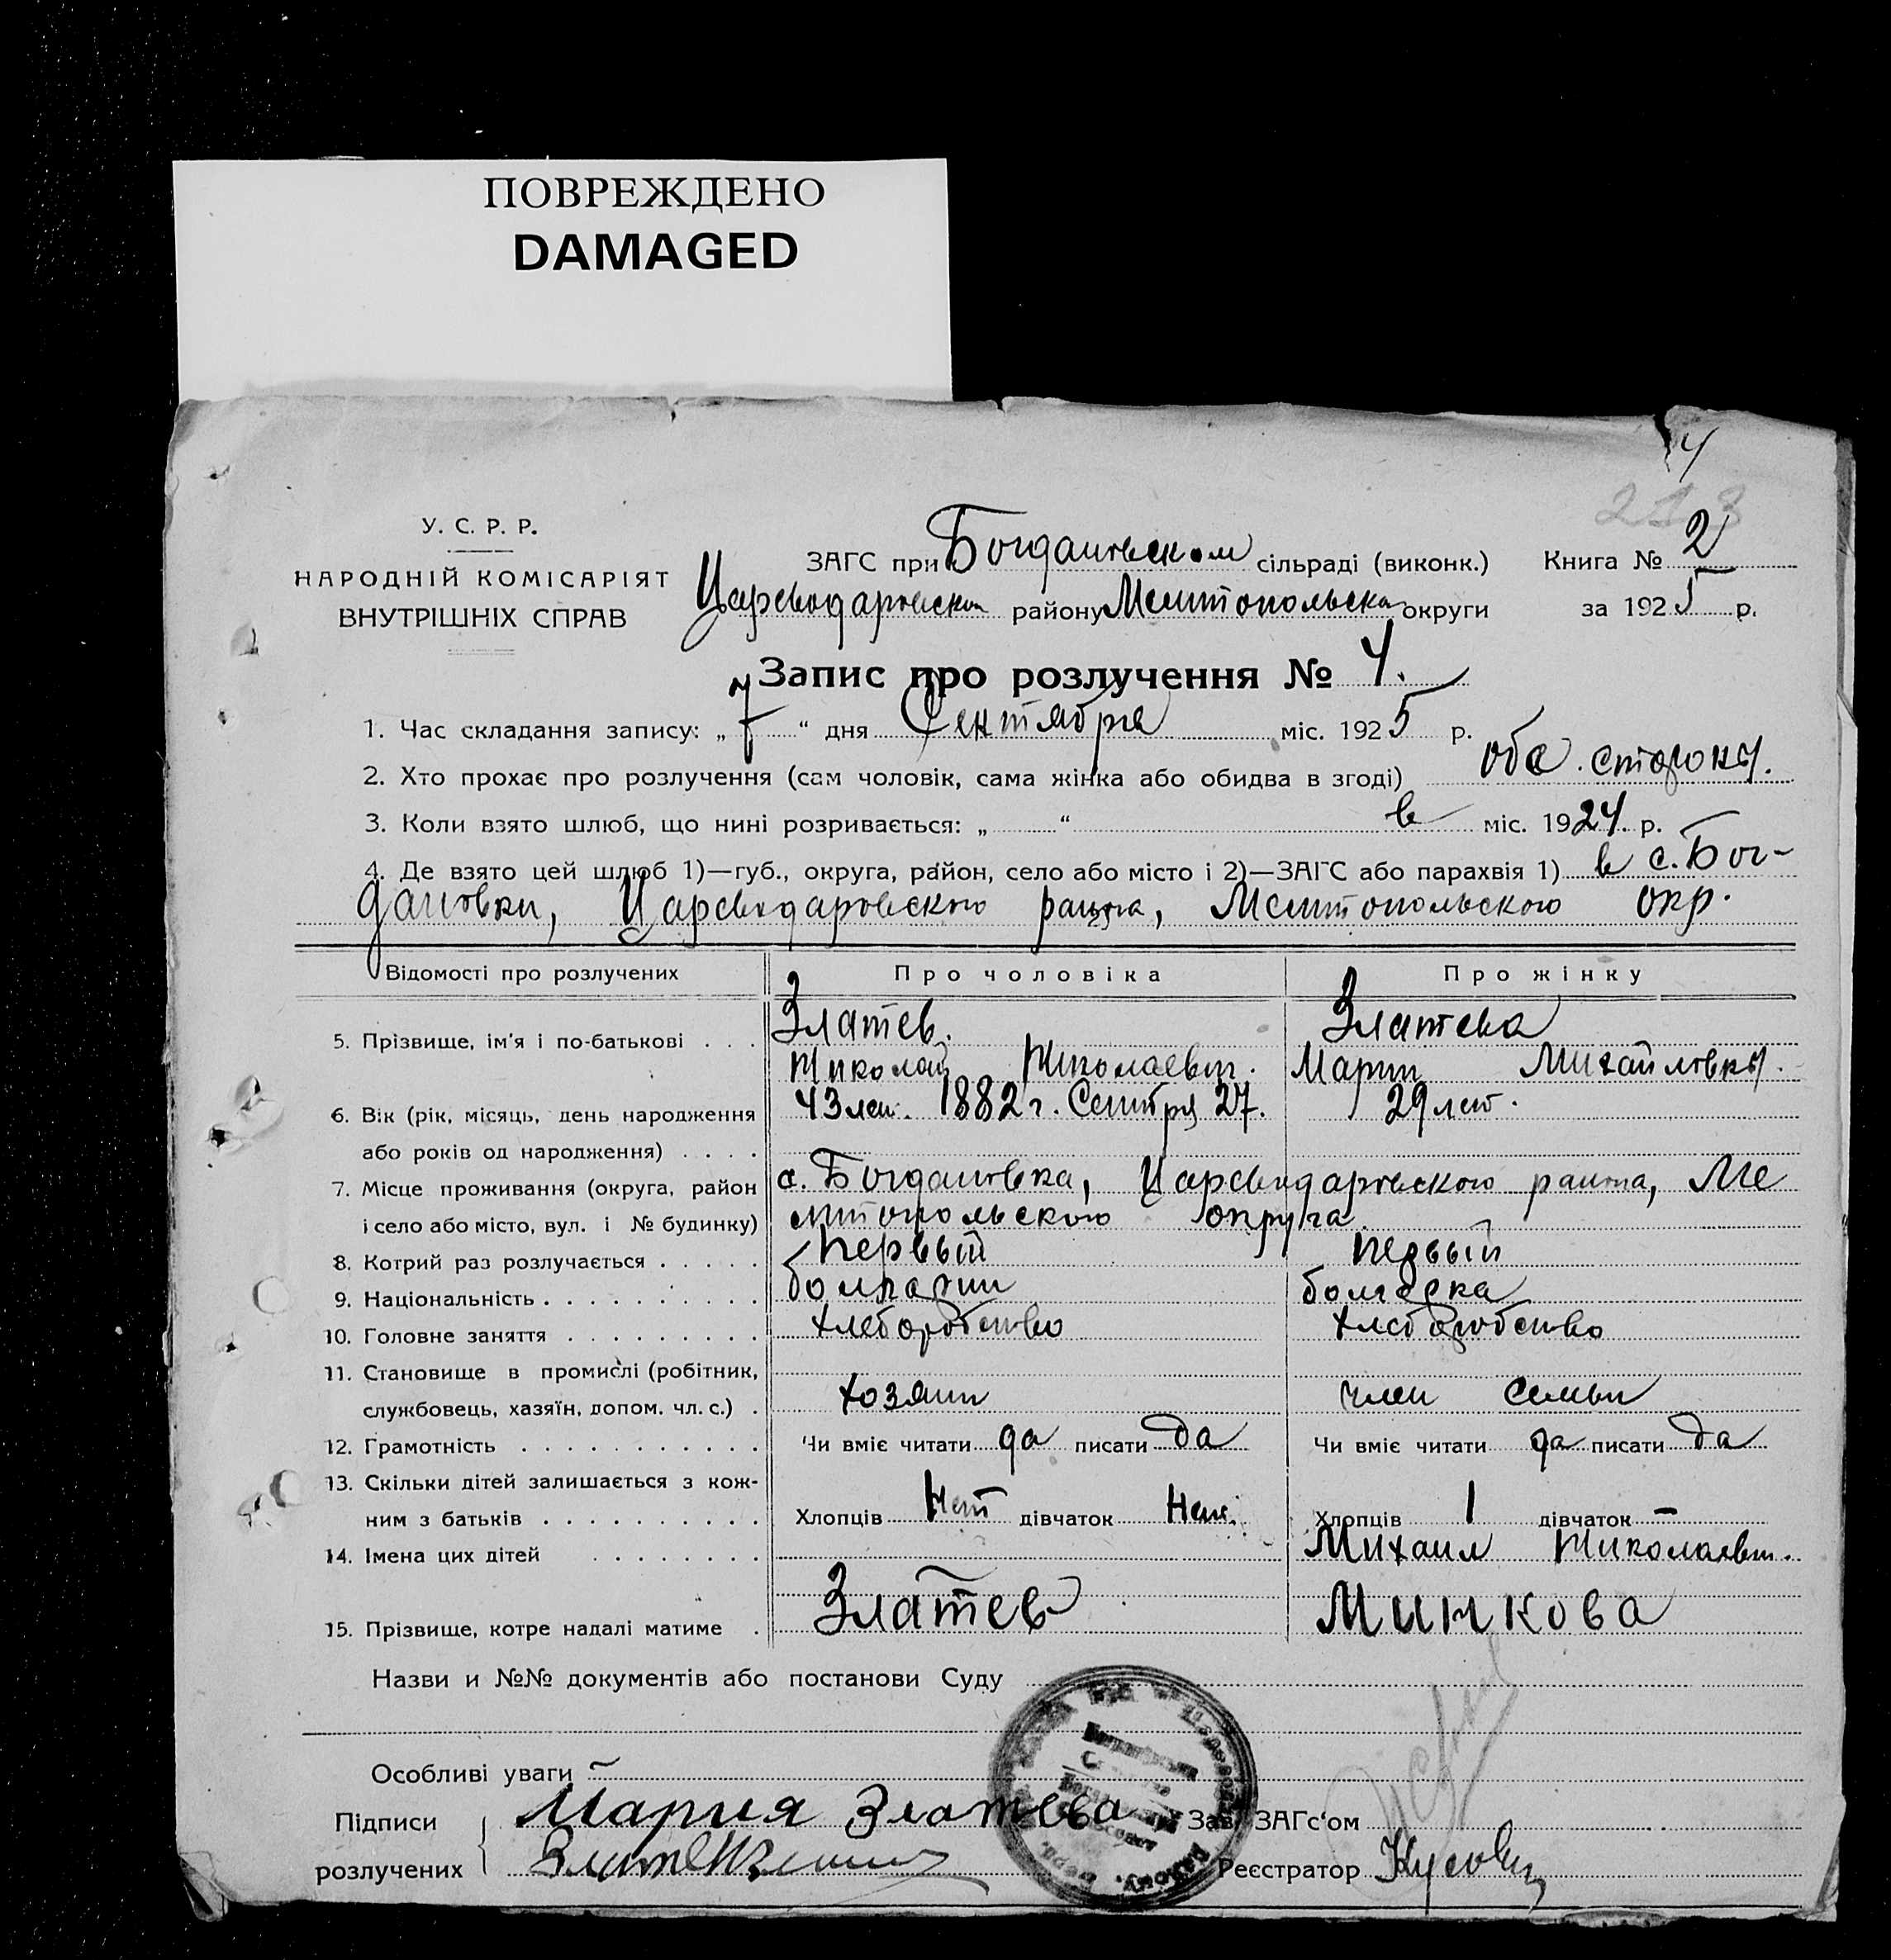 ПОВРЕЖДЕНО
DAMAGED
4
213
У. С. Р. Р.
НАРОДНІЙ КОМІСАРІЯТ
ВНУТРІШНІХ СПРАВ
ЗАГС при Богдановском сільраді (виконк.)
Книга № 2
Царсводаровском району Мелитопольска округи
за 1925 р.
Запис про розлучення № 4.
1. Час складання запису: „ 7 “ дня Сентября міс. 1925 р.
2. Хто прохає про розлучення (сам чоловік, сама жінка або обидва в згоді) обе стороны.
3. Коли взято шлюб, що нині розривається: „ “ в міс. 1924 р.
4. Де взято цей шлюб 1)—губ., округа, район, село або місто і 2)—ЗАГС або парахвія 1) в с. Бог-
дановки, Царсводаровского района, Мелитопольского окр.
Відомості про розлучених Про чоловіка Про жінку
5. Прізвище, ім'я і по-батькові . . . Златев. Златева
Николай Николаевич. Мария Михайловны.
6. Вік (рік, місяць, день народження 43 лет. 1882 г. Сентбря 27. 29 лет.
або років од народження) . . . .
7. Місце проживання (округа, район с. Богдановка, Царсводаровского раиона, Ме
і село або місто, вул. і № будинку) литопольского округа.
8. Котрий раз розлучається . . . . . первый первый
9. Національність . . . . . . . . . . болгарин болгарка
10. Головне заняття . . . . . . . . . хлеборобство хлеборобство
11. Становище в промислі (робітник,
службовець, хазяїн, допом. чл. с.) . хозяин член семьи
12. Грамотність . . . . . . . . . . . Чи вміє читати да писати да Чи вміє читати да писати да
13. Скільки дітей залишається з кож-
ним з батьків . . . . . . . . . . Хлопців Нет дівчаток Нет. Хлопців 1 дівчаток —
14. Імена цих дітей . . . . . . . . Михаил Николаевич.
15. Прізвище, котре надалі матиме . Златев Минкова
Назви и №№ документів або постанови Суду
Особливі уваги
Підписи Мария Златева Зав. ЗАГс'ом
розлучених Реєстратор